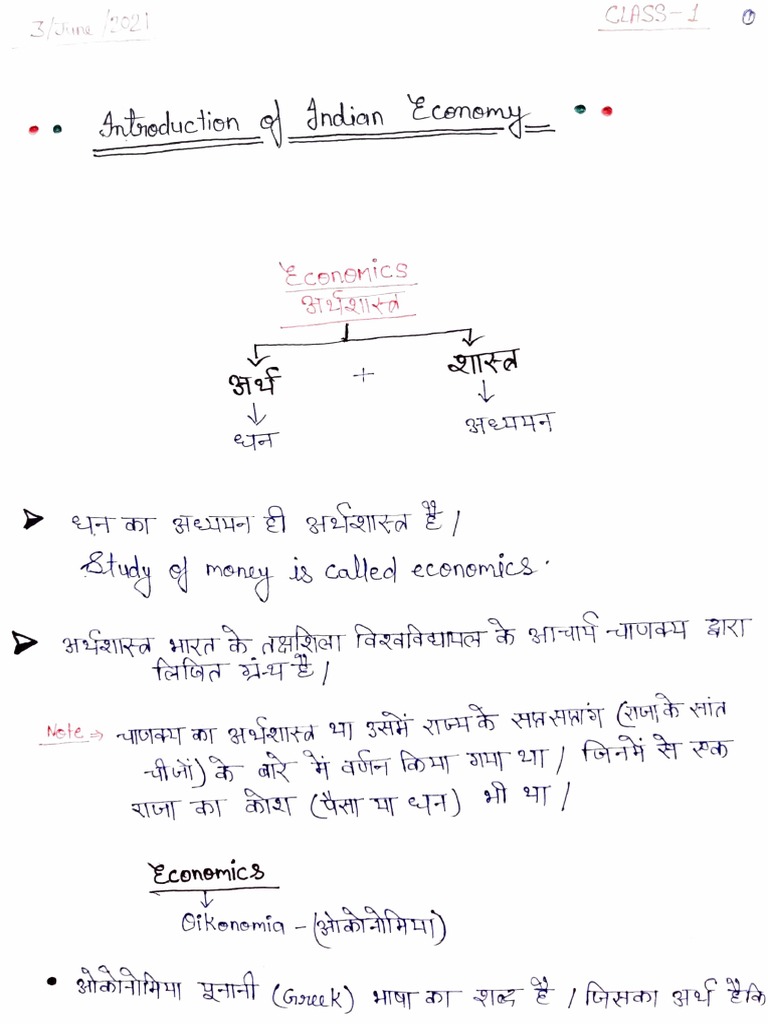 3/June/2021
CLASS-1 1
Introduction of Indian Economy
Economics
अर्थशास्त्र
अर्थ + शास्त्र
धन अध्ययन
धन का अध्ययन ही अर्थशास्त्र है।
Study of money is called economics.
अर्थशास्त्र भारत के तक्षशिला विश्वविद्यालय के आचार्य चाणक्य द्वारा
लिखित ग्रंथ है।
Note ⇒ चाणक्य का अर्थशास्त्र था उसमें राज्य के सप्त सप्तांग (राजा के सांत
चीजों) के बारे में वर्णन किया गया था। जिनमें से एक
राजा का कोश (पैसा या धन) भी था।
Economics
Oikonomia - (ओकोनोमिया)
• ओकोनोमिया यूनानी (Greek) भाषा का शब्द है। जिसका अर्थ है कि